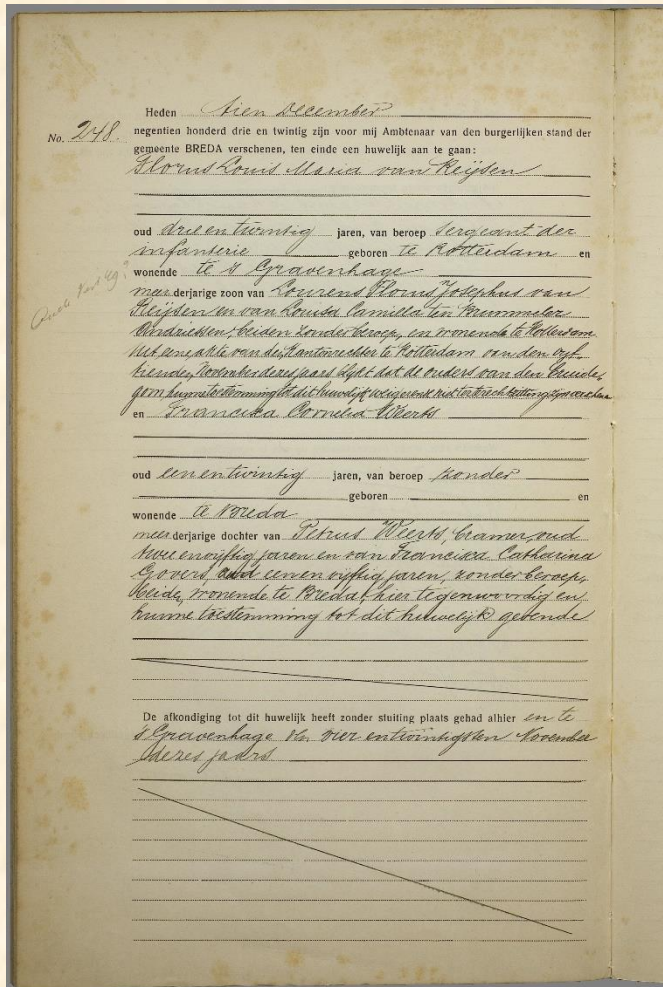 Heden tien December
No. 248. negentien honderd drie en twintig zijn voor mij Ambtenaar van den burgerlijken stand der
gemeente BREDA verschenen, ten einde een huwelijk aan te gaan:
Florus Louis Maria van Reijsen
oud drie en twintig jaren, van beroep sergeant der
infanterie geboren te Rotterdam en
wonende te 's Gravenhage
meerderjarige zoon van Lourens Florus Josephus van
Reijsen en van Louisa Camilla ten Brummeler
Andriesse, beiden zonder beroep, en wonende te Rotterdam
Uit eene akte van den Kantonrechter te Rotterdam van den vijf-
tienden November dezes jaars blijkt dat de ouders van den bruide-
gom hunne toestemming tot dit huwelijk weigerende niet ter terechtzitting zijn
en Francisca Cornelia Weerts
oud een en twintig jaren, van beroep zonder
geboren en
wonende te Breda
meerderjarige dochter van Petrus Weerts, Cramer, oud
twee en vijftig jaren en van Francisca Catharina
Govers, oud een en vijftig jaren, zonder beroep,
beide, wonende te Breda, hier tegenwoordig en
hunne toestemming tot dit huwelijk gevende
De afkondiging tot dit huwelijk heeft zonder stuiting plaats gehad alhier en te
's Gravenhage den vier entwintigsten November
dezes jaars